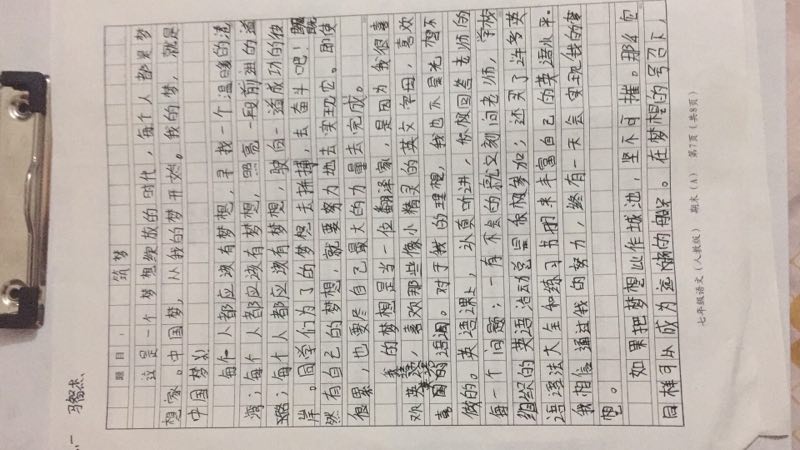 马智杰
题目：筑梦
这是一个梦想绽放的时代，每个人都是梦
想家。中国梦，从我的梦开始。我的梦，就是
中国梦！
每个人都应该有梦想，寻找一个温暖的港
湾；每个人都应该有梦想，照亮一段前进的道
路；每个人都应该有梦想，驶向一道成功的彼
岸。同学们为了的梦想去拼搏，去奋斗吧！既
然有自己的梦想，就要努力地去实现它。即使
很累，也要尽自己最大的力量去完成。
我的梦想是当一位翻译家，是因为我很喜
欢英语，喜欢那些像小精灵的英文字母，喜欢
英国的语调。对于我的理想，我也不是光想不
做的。英语课上，认真听讲，积极回答老师的
每一个问题；一有不会的就立刻问老师，学校
组织的英语活动总是积极参加；还买了许多英
语语法大全和练习书册来丰富自己的英语水平。
我相信通过我的努力，终有一天会实现我的梦
想。
如果把梦想比作城池，坚不可摧。那么它
同样可以成为远航的船。在梦想的号召下，
七年级语文（人教版） 期末（A） 第7页（共8页）